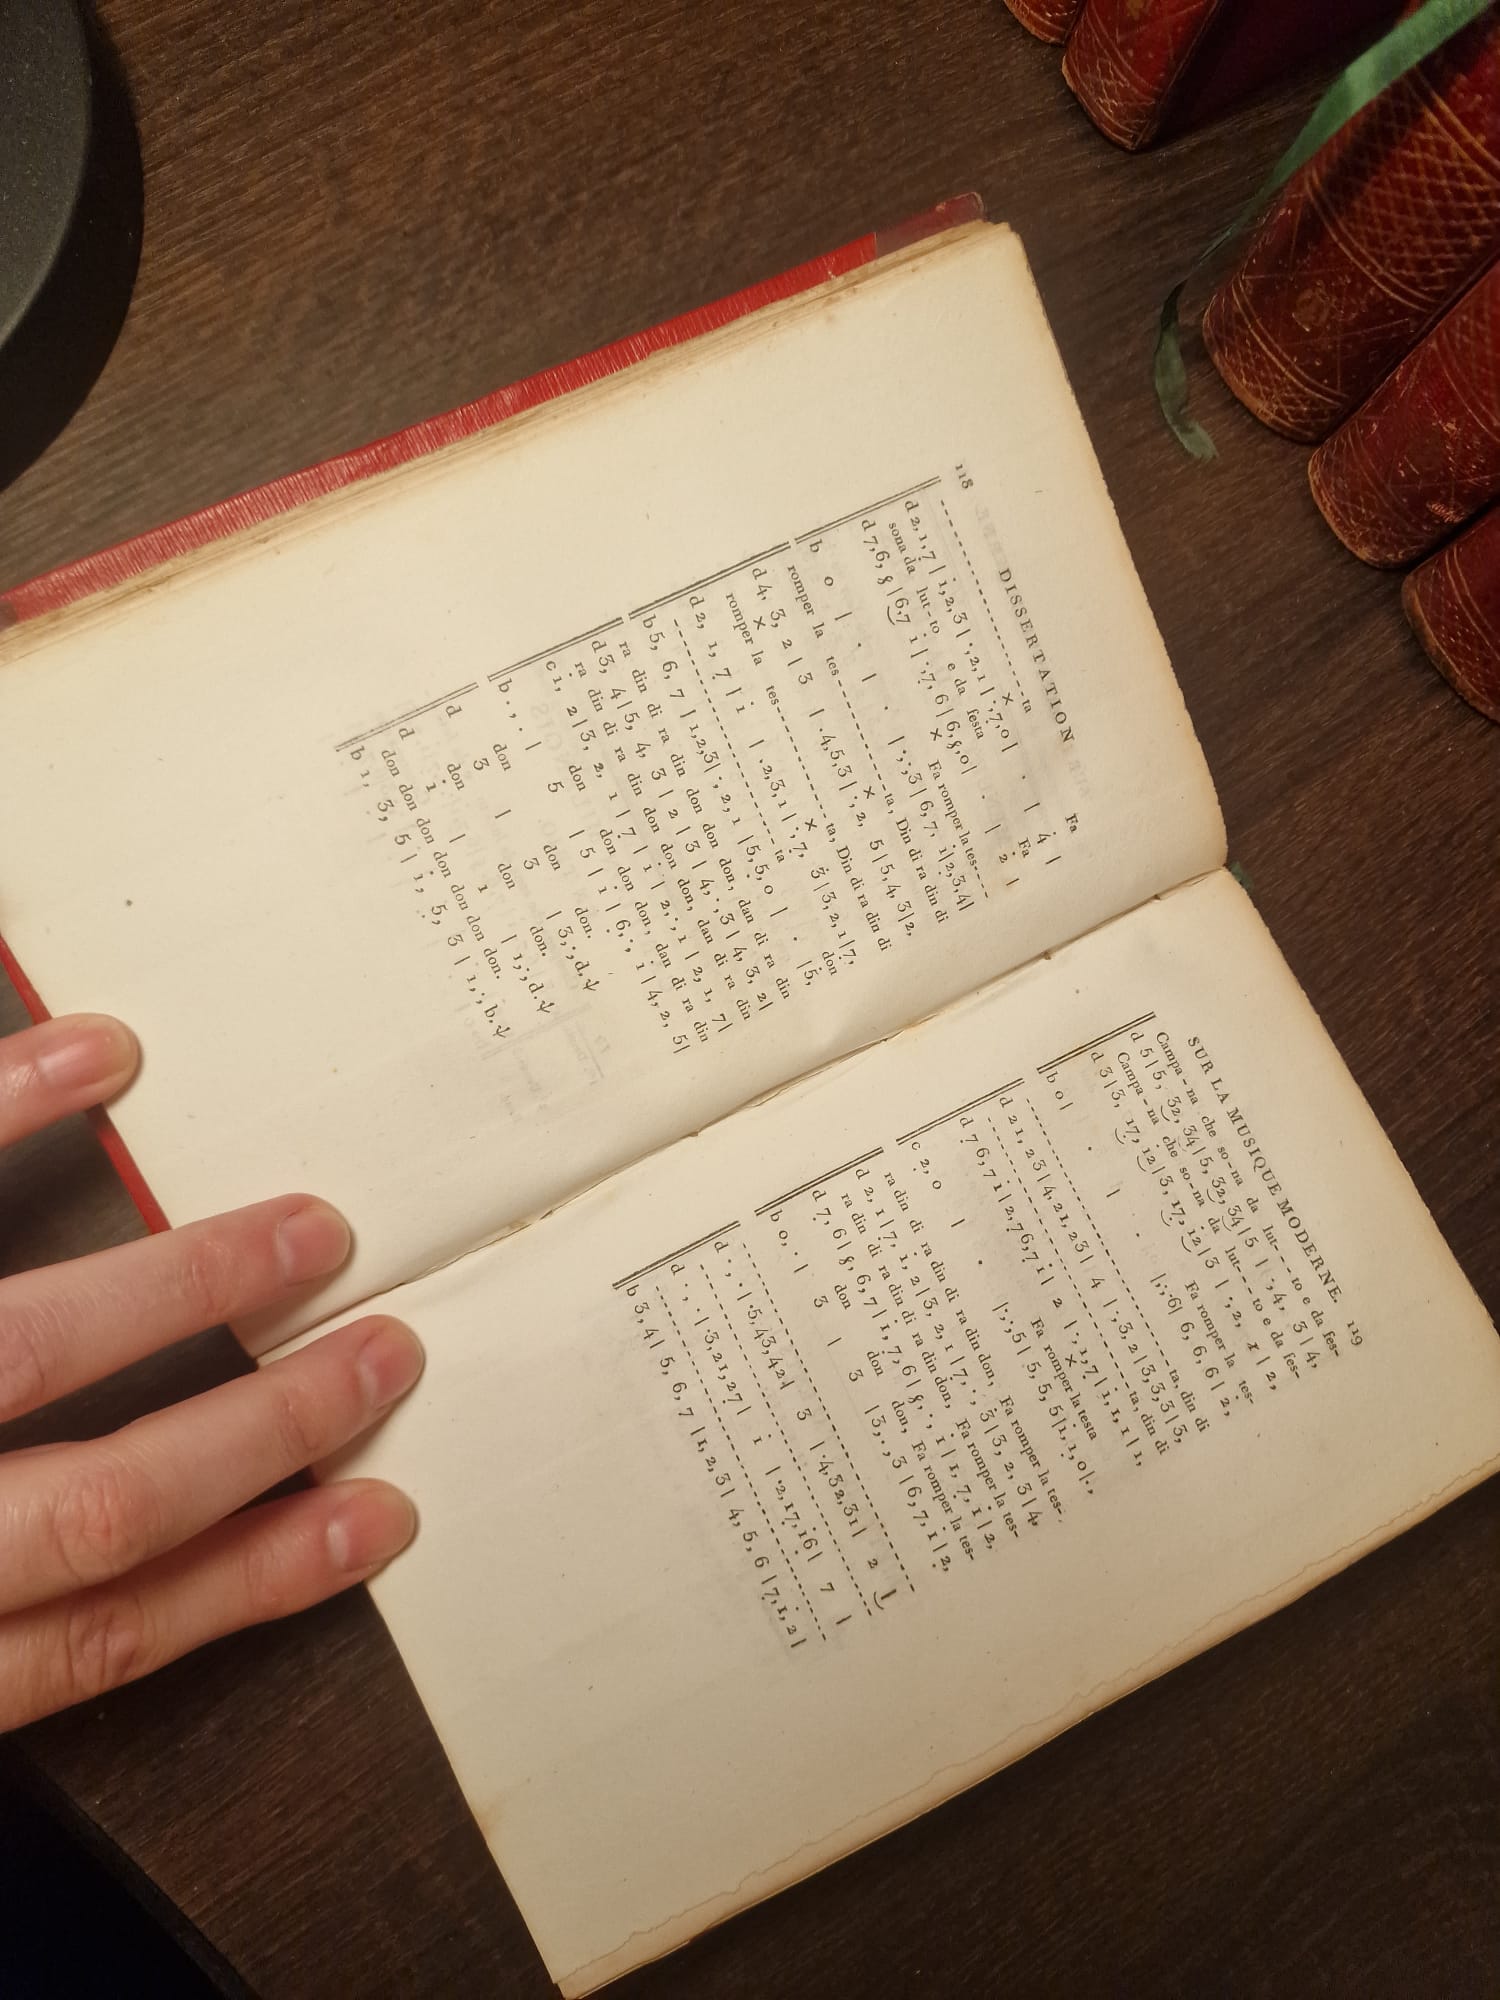 118 DISSERTATION
- - - - - - - - - - - - - - - - ta Fa
d 2, 1, 7 | 1, 2, 3 | ·, 2, 1 | ·, 7, 0 | · | 4 |
sona da lut-to e da festa Fa
d 7, 6, 8 | 6, 7 1 | ·, 7, 6 | 6, 8, 0 | · | 2 |
Fa romper la tes- - - -
b 0 | · | · | ·, ·, 3 | 6, 7, 1 | 2, 3, 4 |
romper la tes- - - - - - - - ta, Din di ra din di
d 4, 3, 2 | 3 | ·4, 5, 3 | ·, 2, 5 | 5, 4, 3 | 2,
romper la tes- - - - - - - - ta, Din di ra din di
d 2, 1, 7 | 1 | ·2, 3, 1 | ·, 7, 3 | 3, 2, 1 | 7,
- - - - - - - - - - - - - - - - ta don
b 5, 6, 7 | 1, 2, 3 | ·, 2, 1 | 5, 5, 0 | · | 5,
ra din di ra din don don don, dan di ra din
d 3, 4 | 5, 4, 3 | 2 | 3 | 4, ·, 3 | 4, 3, 2 |
ra din di ra din don don don, dan di ra din
c 1, 2 | 3, 2, 1 | 7 | 1 | 2, ·, 1 | 2, 1, 7 |
don don don don, dan di ra din
b ·, · | 5 | 5 | 1 | 6, ·, 1 | 4, 2, 5 |
don don don don.
d 3 | 3 | 3, ·, d.
don don don.
d 1 | 1 | 1, ·, d.
don don don don don don don.
b 1, 3, 5 | 1, 5, 3 | 1, ·, b.
SUR LA MUSIQUE MODERNE. 119
Campa - na che so-na da lut- - - to e da fes-
d 5 | 5, 32, 34 | 5, 32, 34 | 5 | ·, 4, 3 | 4,
Campa - na che so-na da lut- - - to e da fes-
d 3 | 3, 17, 12 | 3, 17, 12 | 3 | ·, 2, 1 | 2,
Fa romper la tes-
b 0 | · | · | ·, ·6 | 6, 6, 6 | 2,
- - - - - - - - - - - - - - - - ta, din di
d 21, 23 | 4, 21, 23 | 4 | ·, 3, 2 | 3, 3, 3 | 3,
- - - - - - - - - - - - - - - - ta, din di
d 76, 71 | 2, 76, 71 | 2 | ·, 1, 7 | 1, 1, 1 | 1,
Fa romper la testa
c 2, 0 | · | ·, ·, 5 | 5, 5, 5 | 1, 1, 0 | ·,
ra din di ra din di ra din don, Fa romper la tes-
d 2, 1 | 7, 1, 2 | 3, 2, 1 | 7, ·, 3 | 3, 2, 3 | 4,
ra din di ra din di ra din don, Fa romper la tes-
d 7, 6 | 8, 6, 7 | 1, 7, 6 | 8, ·, 1 | 1, 7, 1 | 2,
don don don, Fa romper la tes-
b 0, · | 3 | 3 | 3, ·, 3 | 6, 7, 1 | 2,
- - - - - - - - - - - - - - - - - - - -
d ·, · | ·5, 43, 42 | 3 | ·4, 32, 31 | 2 |
- - - - - - - - - - - - - - - - - - - -
d ·, · | ·3, 21, 27 | 1 | ·2, 17, 16 | 7 |
- - - - - - - - - - - - - - - - - - - -
b 3, 4 | 5, 6, 7 | 1, 2, 3 | 4, 5, 6 | 7, 1, 2 |